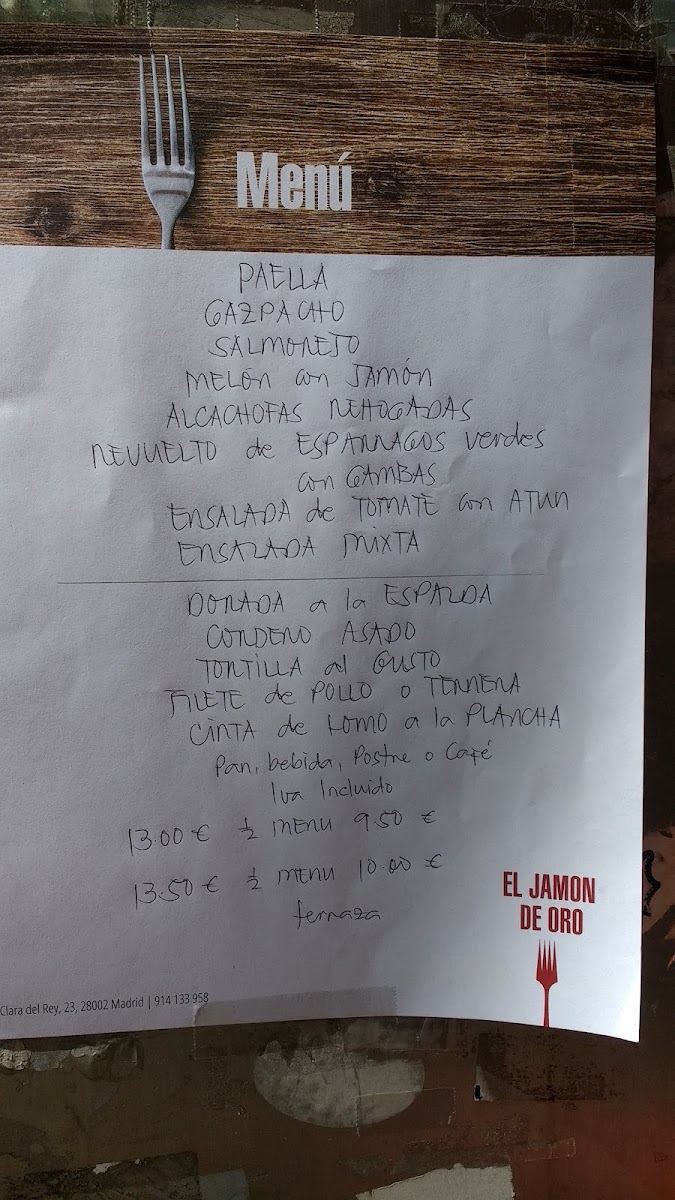 Menú
PAELLA
GAZPACHO
SALMOREJO
MELÓN con JAMÓN
ALCACHOFAS REHOGADAS
REVUELTO de ESPARRAGOS verdes
con GAMBAS
ENSALADA de TOMATE con ATUN
ENSALADA MIXTA
DORADA a la ESPALDA
CORDERO ASADO
TORTILLA al GUSTO
FILETE de POLLO o TERNERA
CINTA de LOMO a la PLANCHA
Pan, bebida, Postre o Café
Iva Incluido
13.00 € ½ MENU 9.50 €
13.50 € ½ MENU 10.00 €
terraza
EL JAMON
DE ORO
Clara del Rey, 23, 28002 Madrid | 914 133 958